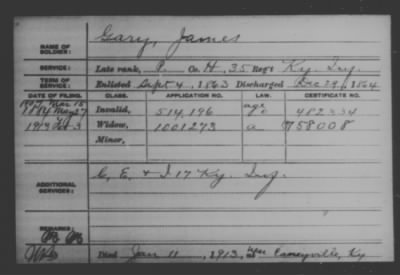 NAME OF SOLDIER: Gary, James
SERVICE: Late rank, P. Co. H, 35 Reg't Ky. Inf.
TERM OF SERVICE: Enlisted Sept 4, 1863 Discharged Dec 29, 1864
DATE OF FILING. CLASS. APPLICATION NO. LAW. CERTIFICATE NO.
1907 Mar 15 age
1884 May 27 Invalid, 514,196 482334
1913 3 Widow, 1001273 a 758008
Minor,
ADDITIONAL SERVICES: G, E, & I 17 Ky. Inf.
REMARKS:
Died Jan 11, 1913, Caneyville, Ky